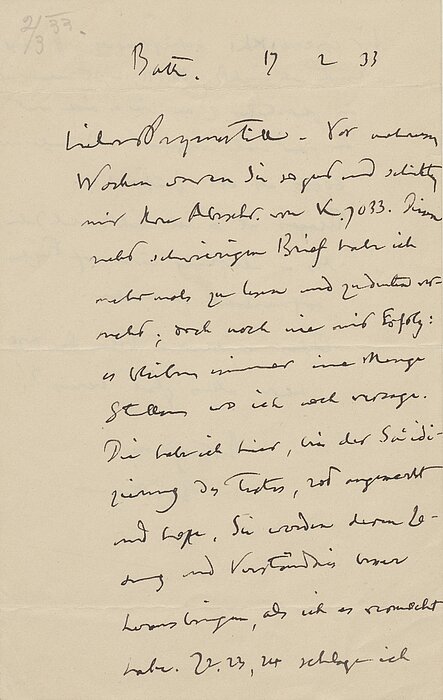 2/3 33.
Bath. 17 2 33
Lieber Borgmästike - Vor mehreren
Wochen waren Sie so gut und schickten
mir Ihre Abschr. von K. 7033. Diesen
recht schwierigen Brief habe ich
mehrmals zu lesen und zu deuten ver-
sucht; doch noch nie mit Erfolg:
es bleiben immer eine Menge
Stellen wo ich noch versage.
Die habe ich hier, bei der
des Textes, rot angemerkt
und hoffe, Sie werden deren Le-
sung und Verständnis besser
herausbringen, als ich es vermocht
habe. Zz. 23, 24 schlage ich